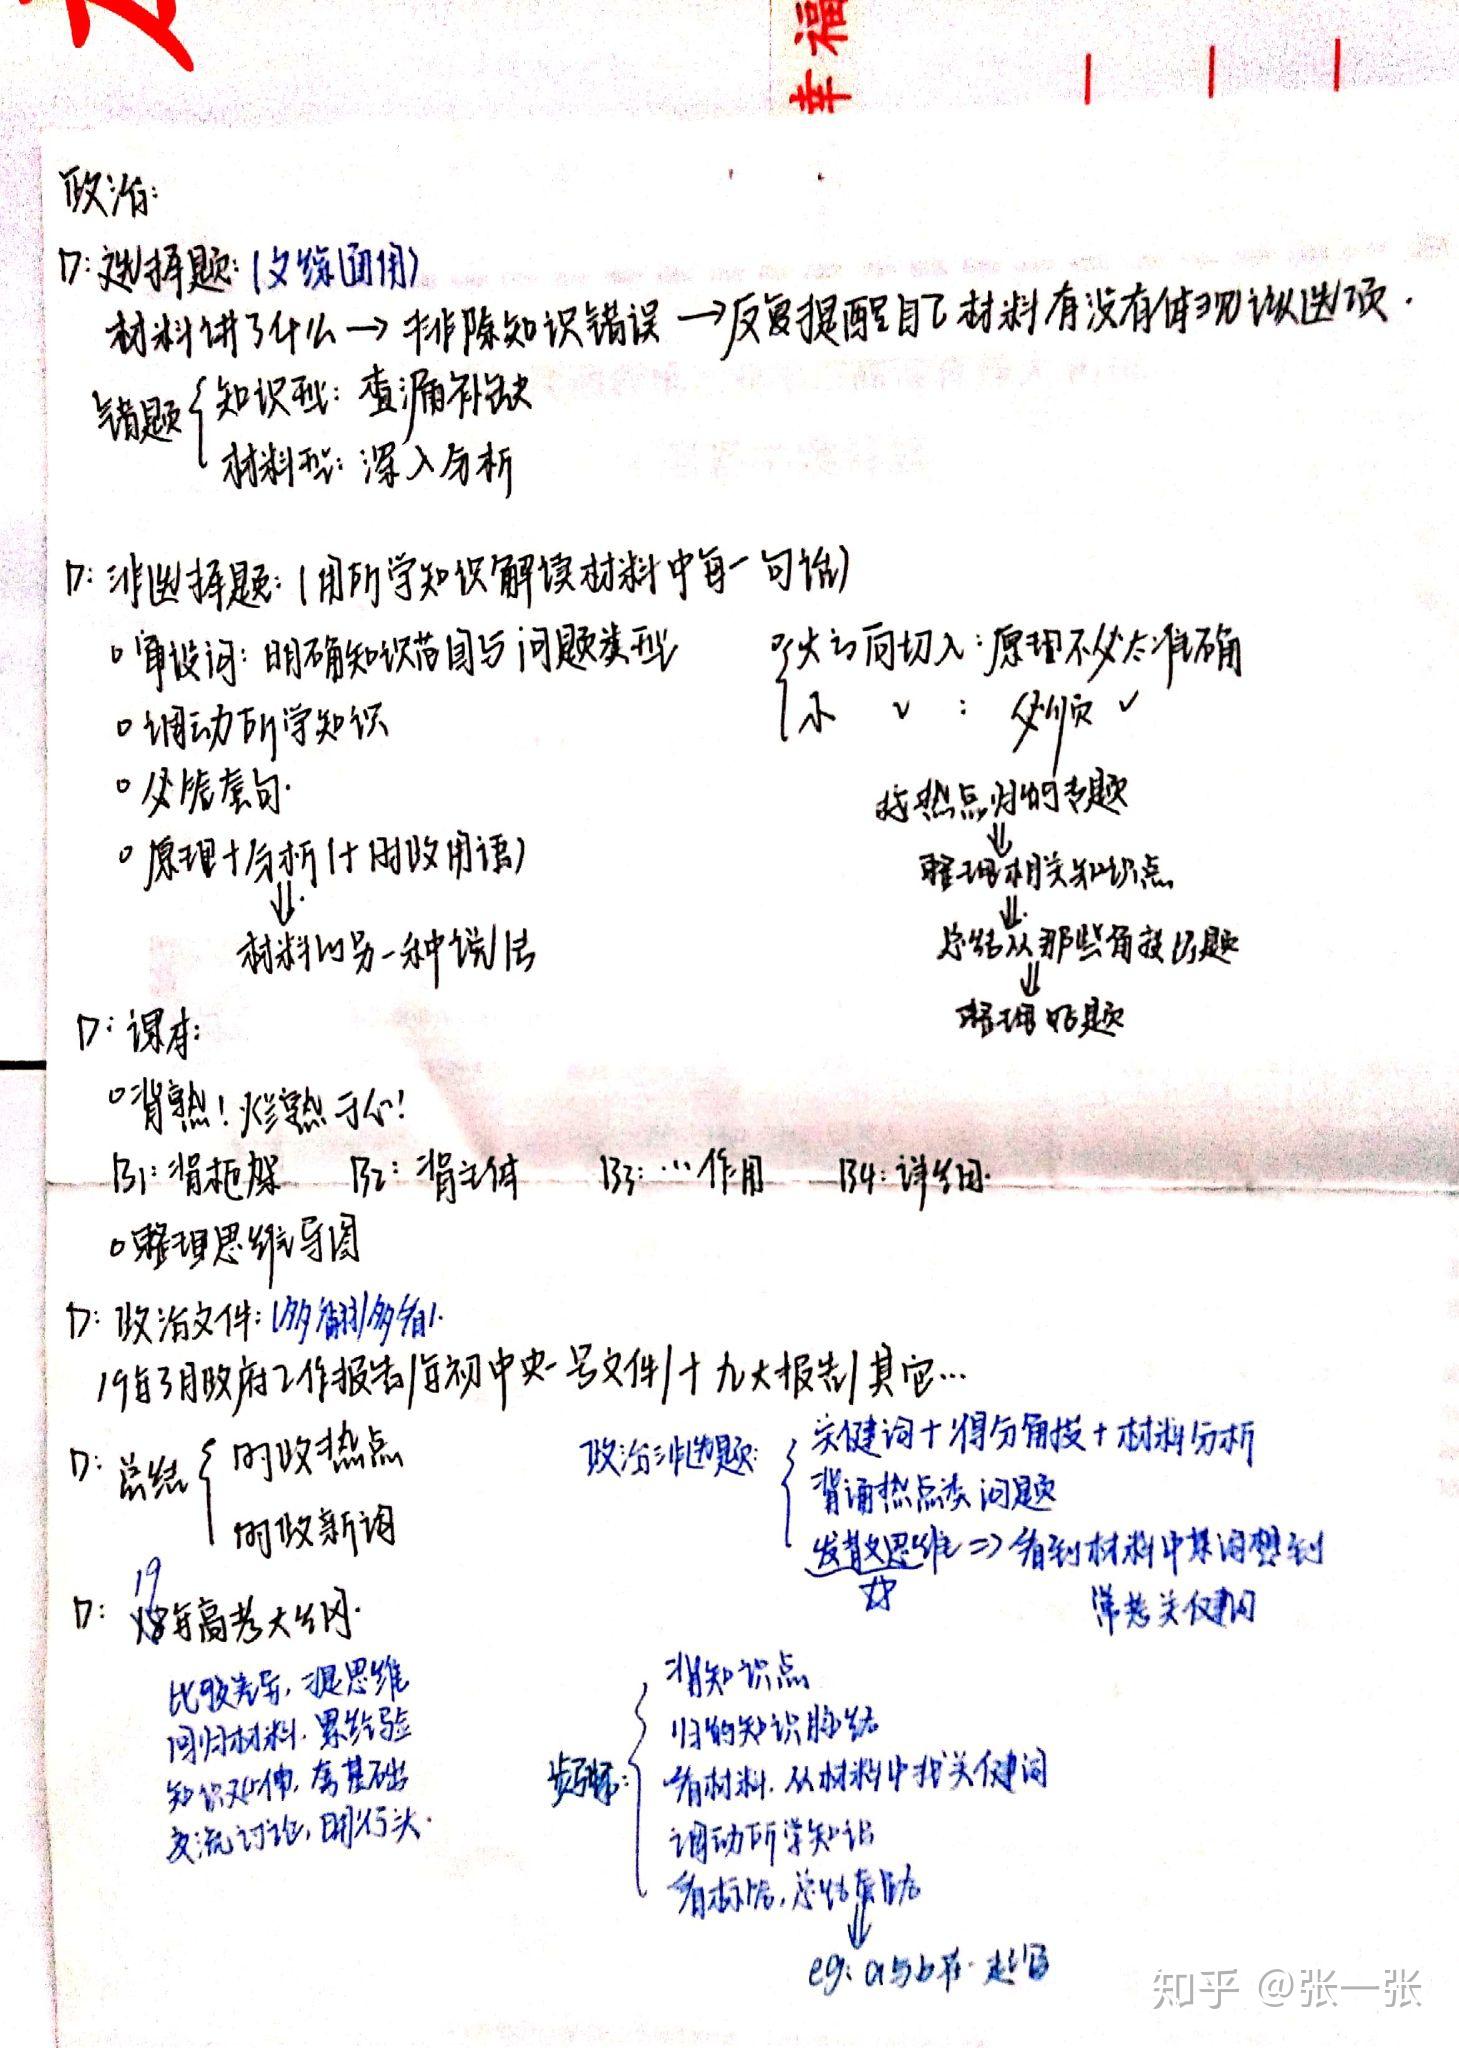 幸福
政治:
D: 选择题:(文综通用)
材料讲了什么→排除知识错误→反复提醒自己材料有没有体现该选项.
错题{知识型: 查漏补缺
材料型: 深入分析
D: 非选择题:(用所学知识解读材料中每一句话)
审设问: 明确知识范围与问题类型
调动所学知识
必背套句.
原理+分析(+时政用语)
⇓
材料的另一种说法
大方向切入:原理不必太准确
小 〃 : 必须 ✓
将热点归纳专题
⇓
整理相关知识点
⇓
总结从那些角度出题
⇓
整理好题
D: 课本:
背熟!烂熟于心!
B1:背框架 B2:背主体 B3:…作用 B4:详细.
整理思维导图
D: 政治文件:(多翻/多看).
19年3月政府工作报告/年初中央一号文件/十九大报告/其它…
D: 总结{时政热点
时政新词
政治非选题:{关键词+得分角度+材料分析
背诵热点类问题
发散思维⇒看到材料中某词想到
常考关键词
D: 19年高考大纲.
比较差异,提思维
回归材料.累经验
知识延伸,夯基础
交流讨论,明行头.
步骤:{背知识点
归纳知识脉络
看材料.从材料中找关键词
调动所学知识
看标答,总结套路
⇓
eg: a与b在一起写
知乎 @张一张